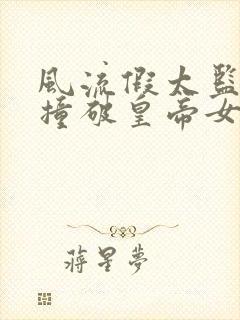 风流假太监
撞破皇帝女
蒋星梦